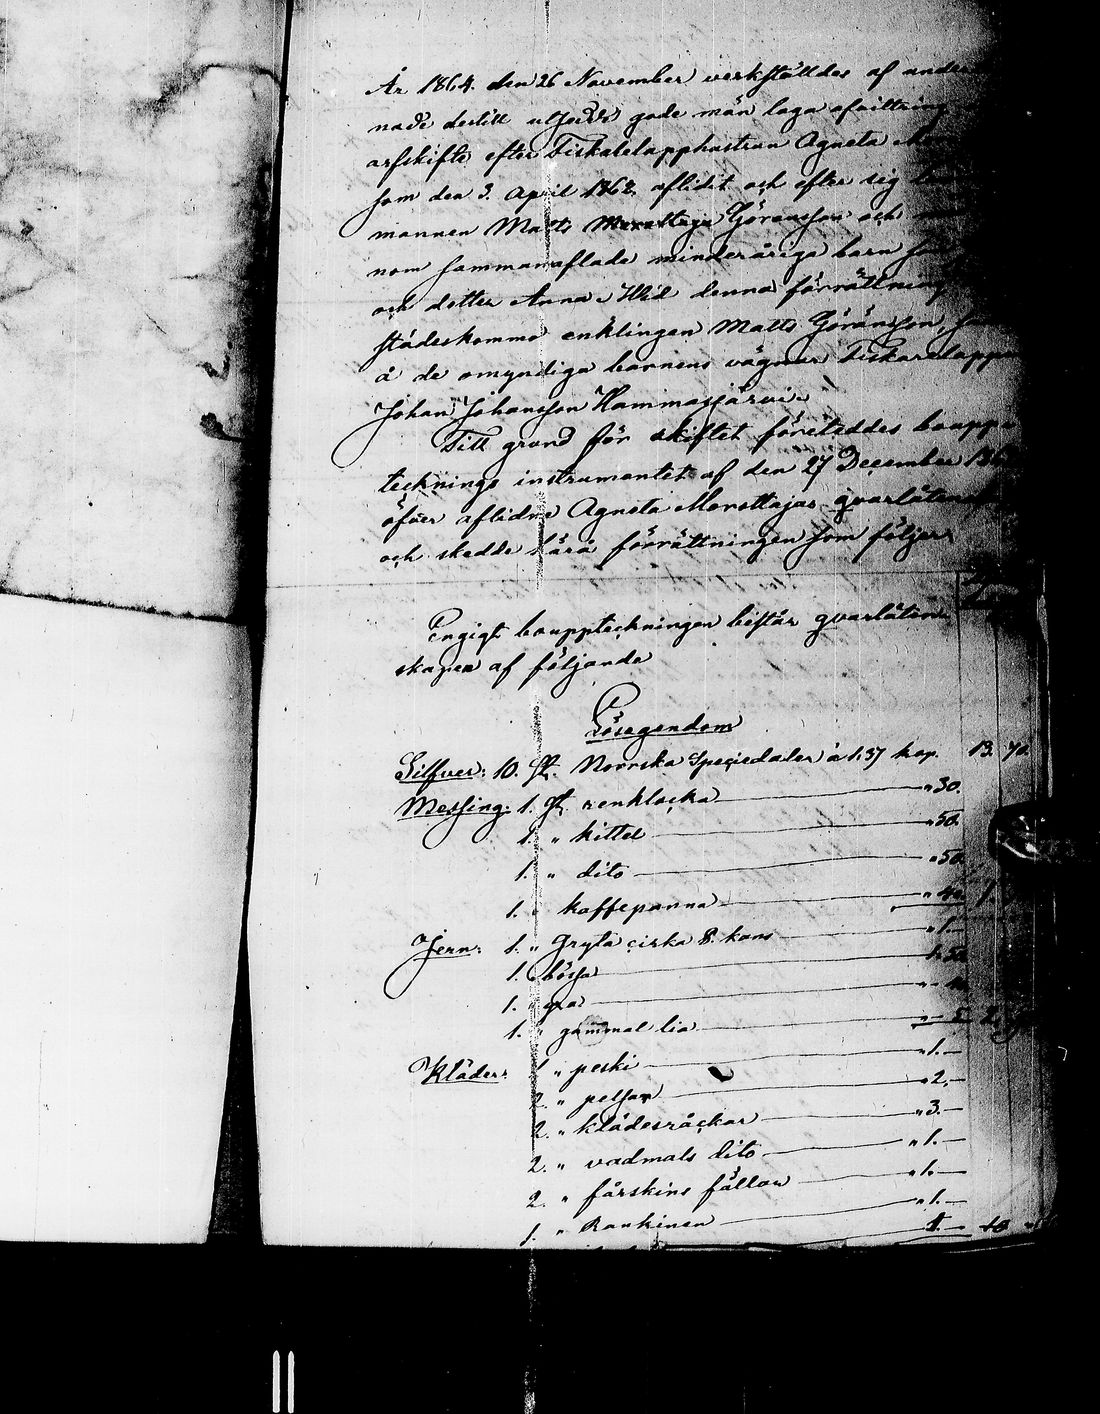 År 1864. den 26 November verkställdes af under
nade dertill utsedde gode män laga afvittring
arfskifte efter Fiskarelapphustrun Agneta
som den 3. April 1862 aflidit och efter sig
mannen Matts Morottaja Göransson och
nom sammanaflade minderåriga barn
och dotter Anna. Wid denna förrättning
städeskommo enklingen Matts Göransson,
å de omyndiga barnens vägnar Fiskarelappen
Johan Johansson Hammasjärvi.
Till grund för skiftet företeddes bouppt
tecknings instrumentet af den 27 December
öfver aflidne Agneta Morottajas qvarlåtenskap
och skedde härå förrättningen som följer:
Enligt bouppteckningen består qvarlåten
skapen af följande
Lösegendom
Silfver: 10. st. Norrska Speciedaler à 1.37 kop. 13. 70.
Messing: 1. st. renklocka " 30.
1. " kittel " 50.
1. " dito " 50.
1. " kaffepanna " 40. 1.
Jern: 1. " Gryta cirka 8. kans " 1.—
1. " bössa 1. 50.
1. "
1. " gammal lia " 5. 2.
Kläder: 1 " peski " 1.—
2. " pelsar " 2.—
2. " klädesräckar " 3.—
2. " vadmals dito " 1.—
2. " fårskins fällar " 1.—
1. " Rankinen " 1.—